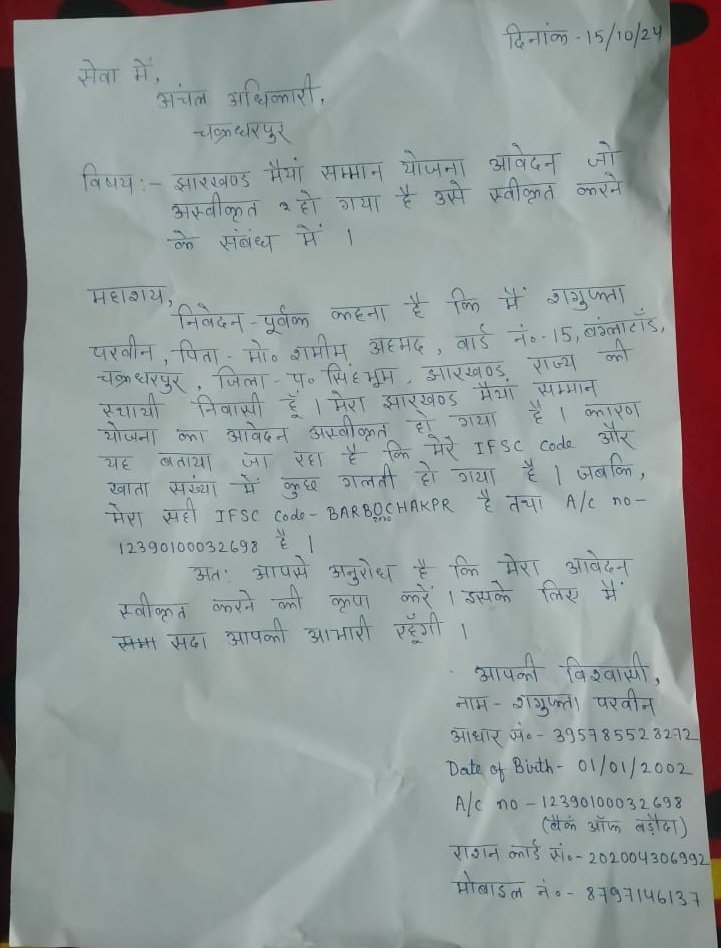 दिनांक - 15/10/24
सेवा में,
अंचल अधिकारी,
चक्रधरपुर
विषय :- झारखण्ड मैयां सम्मान योजना आवेदन जो
अस्वीकृत हो गया है उसे स्वीकृत करने
के संबंध में ।
महाशय,
निवेदन-पूर्वक कहना है कि मैं शगुफ्ता
परवीन, पिता - मो० शमीम अहमद, वार्ड नं०-15, बंग्लाटाँड,
चक्रधरपुर, जिला - प० सिंहभूम, झारखण्ड राज्य की
स्थायी निवासी हूँ । मेरा झारखण्ड मैयां सम्मान
योजना का आवेदन अस्वीकृत हो गया है । कारण
यह बताया जा रहा है कि मेरे IFSC Code और
खाता संख्या में कुछ गलती हो गया है । जबकि,
मेरा सही IFSC Code- BARB0CHAKPR है तथा A/c no-
12390100032698 है ।
अतः आपसे अनुरोध है कि मेरा आवेदन
स्वीकृत करने की कृपा करें । इसके लिए मैं
सदा आपकी आभारी रहूँगी ।
आपकी विश्वासी,
नाम - शगुफ्ता परवीन
आधार सं०- 395785528272
Date of Birth- 01/01/2002
A/c no - 12390100032698
(बैंक ऑफ बड़ौदा)
राशन कार्ड सं०- 202004306992
मोबाइल नं०- 8797146137